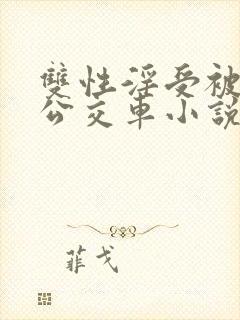 雙性淫受被
公交車小說
菲戈